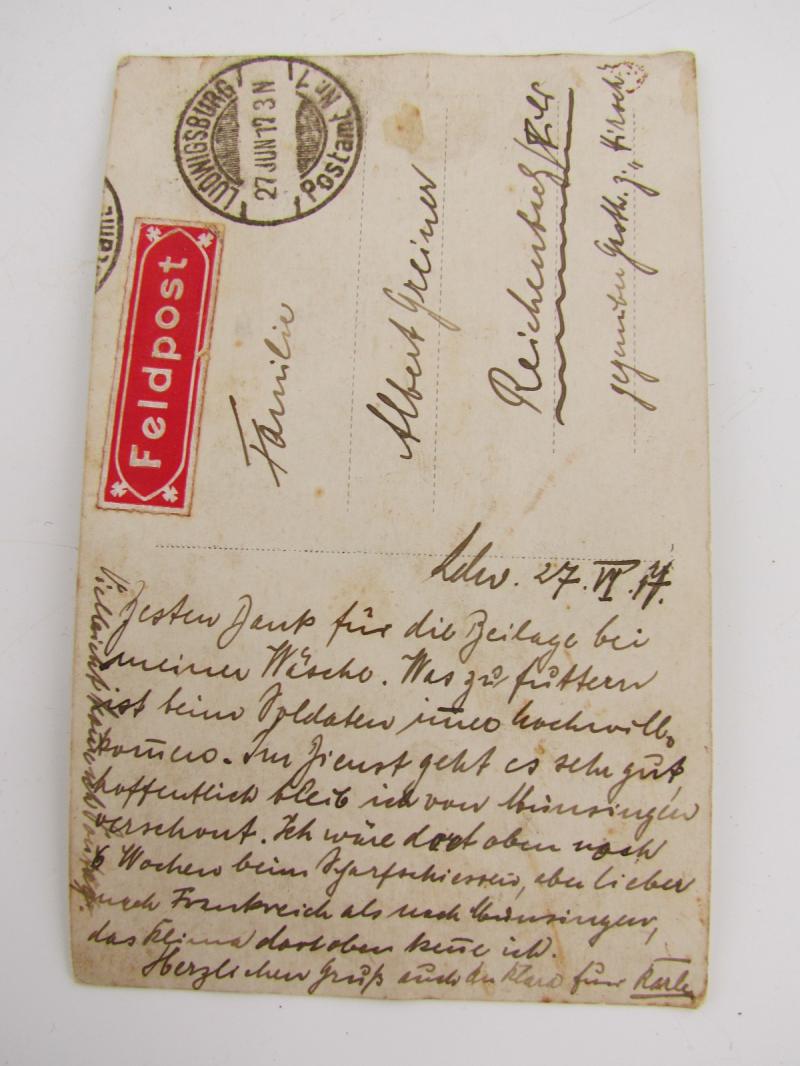 LUDWIGSBURG
27 JUN 17 3 N
Postamt Nr. 1
tamt
Feldpost
Familie
Albert Greiner
Reichenbach/Fils
gegenüber Gasth. z. „Hirsch"
Ldw. 27. VI. 17.
Besten Dank für die Beilage bei
meiner Wäsche. Was zu futtern
ist beim Soldaten immer hochwill-
kommen. Im Dienst geht es sehr gut,
hoffentlich bleib ich von Münsingen
verschont. Ich wäre dort oben noch
6 Wochen beim Scharfschiessen, aber lieber
nach Frankreich als nach Münsingen,
das Klima dort oben kenne ich.
Herzlichen Gruß auch der Klara Karle
Vielleicht komme ich